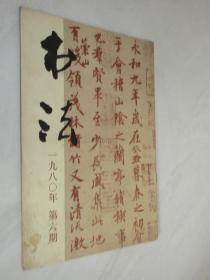 书法
一九八〇年 第六期
永和九年歲在癸丑暮春之初會
于會稽山陰之蘭亭脩禊事
也羣賢畢至少長咸集此地
有崇山峻領茂林脩竹又有清流激